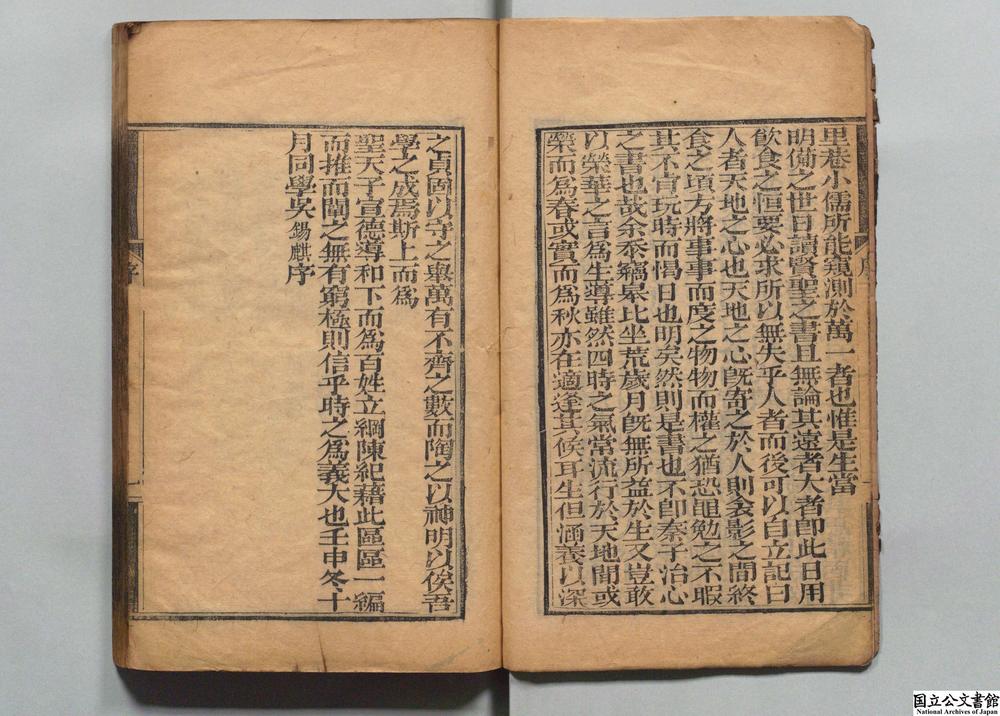 里巷小儒所能窺測於萬一者也惟是生當
明備之世日讀賢聖之書且無論其遠者大者卽此日用
飮食之恒要必求所以無失乎人者而後可以自立記曰
人者天地之心也天地之心旣寄之於人則衾影之間終
食之項方將事事而度之物物而權之猶恐黽勉之不暇
其不宜玩時而愒日也明矣然則是書也不卽奏子治心
之書也哉余忝竊皋比坐荒歲月旣無所益於生又豈敢
以榮華之言爲生導雖然四時之氣常流行於天地間或
榮而爲春或實而爲秋亦在適逢其候耳生但涵義以深
之貞固以守之舉萬有不齊之數而陶之以神明以俟吾
學之成焉斯上而爲
聖天子宣德導和下而爲百姓立綱陳紀藉此區區一編
而推而闡之無有窮極則信乎時之爲義大也壬申冬十
月同學吳錫麒序
序
国立公文書館
National Archives of Japan